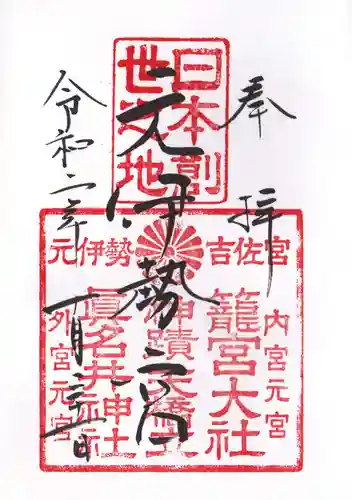 奉拝
日本創
世之地
元伊勢
吉佐宮
元伊勢
内宮元宮
籠宮大社
神蹟天橋立
眞名井神社
外宮元宮
令和二年